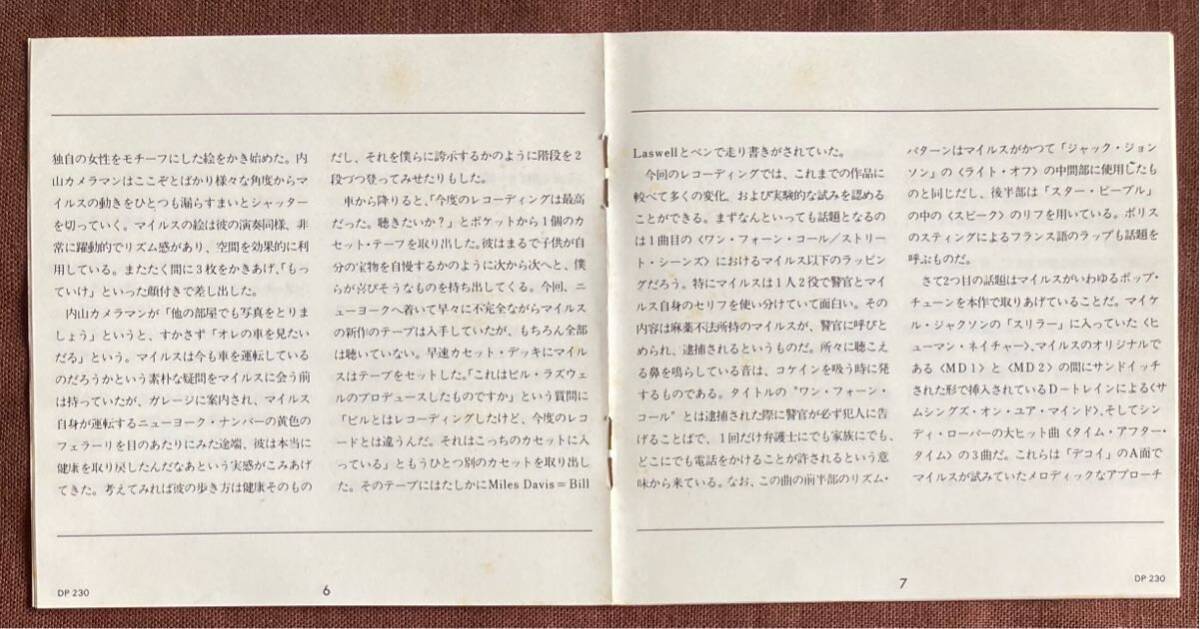 独自の女性をモチーフにした絵をかき始めた。内
山カメラマンはここぞとばかり様々な角度からマ
イルスの動きをひとつも漏らすまいとシャッター
を切っていく。マイルスの絵は彼の演奏同様、非
常に躍動的でリズム感があり、空間を効果的に利
用している。またたく間に3枚をかきあげ、「もっ
ていけ」といった顔付きで差し出した。
内山カメラマンが「他の部屋でも写真をとりま
しょう」というと、すかさず「オレの車を見たい
だろ」という。マイルスは今も車を運転している
のだろうかという素朴な疑問をマイルスに会う前
は持っていたが、ガレージに案内され、マイルス
自身が運転するニューヨーク・ナンバーの黄色の
フェラーリを目のあたりにみた途端、彼は本当に
健康を取り戻したんだなあという実感がこみあげ
てきた。考えてみれば彼の歩き方は健康そのもの
だし、それを僕らに誇示するかのように階段を2
段づつ登ってみせたりもした。
車から降りると、「今度のレコーディングは最高
だった。聴きたいか?」とポケットから1個のカ
セット・テープを取り出した。彼はまるで子供が自
分の宝物を自慢するかのように次から次へと、僕
らが喜びそうなものを持ち出してくる。今回、ニ
ューヨークへ着いて早々に不完全ながらマイルス
の新作のテープは入手していたが、もちろん全部
は聴いていない。早速カセット・デッキにマイル
スはテープをセットした。「これはビル・ラズウェ
ルのプロデュースしたものですか」という質問に
「ビルとはレコーディングしたけど、今度のレコ
ードとは違うんだ。それはこっちのカセットに入
っている」ともうひとつ別のカセットを取り出し
た。そのテープにはたしかにMiles Davis=Bill
DP 230
6
Laswellとペンで走り書きがされていた。
今回のレコーディングでは、これまでの作品に
較べて多くの変化、および実験的な試みを認める
ことができる。まずなんといっても話題となるの
は1曲目の〈ワン・フォーン・コール/ストリー
ト・シーンズ〉におけるマイルス以下のラッピン
グだろう。特にマイルスは1人2役で警官とマイ
ルス自身のセリフを使い分けていて面白い。その
内容は麻薬不法所持のマイルスが、警官に呼びと
められ、逮捕されるというものだ。所々に聴こえ
る鼻を鳴らしている音は、コケインを吸う時に発
するものである。タイトルの"ワン・フォーン・
コール"とは逮捕された際に警官が必ず犯人に告
げることばで、1回だけ弁護士にでも家族にでも、
どこにでも電話をかけることが許されるという意
味から来ている。なお、この曲の前半部のリズム・
パターンはマイルスがかつて「ジャック・ジョン
ソン」の〈ライト・オフ〉の中間部に使用したもの
と同じだし、後半部は「スター・ピープル」
の中の〈スピーク〉のリフを用いている。ポリス
のスティングによるフランス語のラップも話題を
呼ぶものだ。
さて2つ目の話題はマイルスがいわゆるポップ・
チューンを本作で取りあげていることだ。マイケ
ル・ジャクソンの「スリラー」に入っていた〈ヒ
ューマン・ネイチャー〉、マイルスのオリジナルで
ある〈MD1〉と〈MD2〉の間にサンドイッチ
された形で挿入されているDートレインによる〈サ
ムシングズ・オン・ユア・マインド〉、そしてシン
ディ・ローパーの大ヒット曲〈タイム・アフター・
タイム〉の3曲だ。これらは「デコイ」のA面で
マイルスが試みていたメロディックなアプローチ
7
DP 230